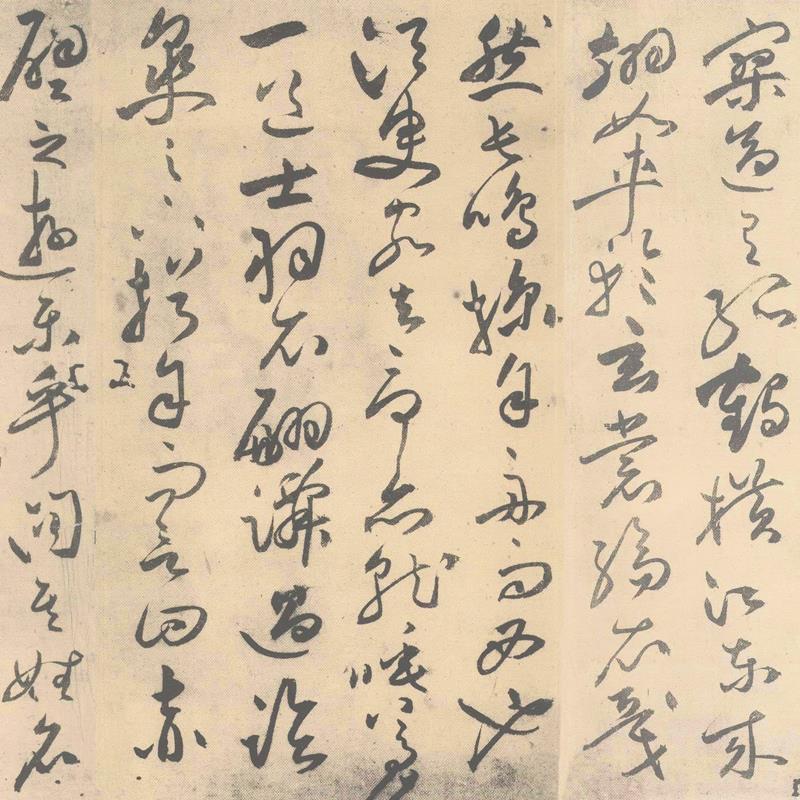 寥適有孤鶴橫江東來
翅如車輪玄裳縞衣戛
然長鳴掠予舟而西也
須臾客去予亦就睡夢
一道士羽衣翩躚過臨
皋之下揖予而言曰赤
壁之遊樂乎問其姓名